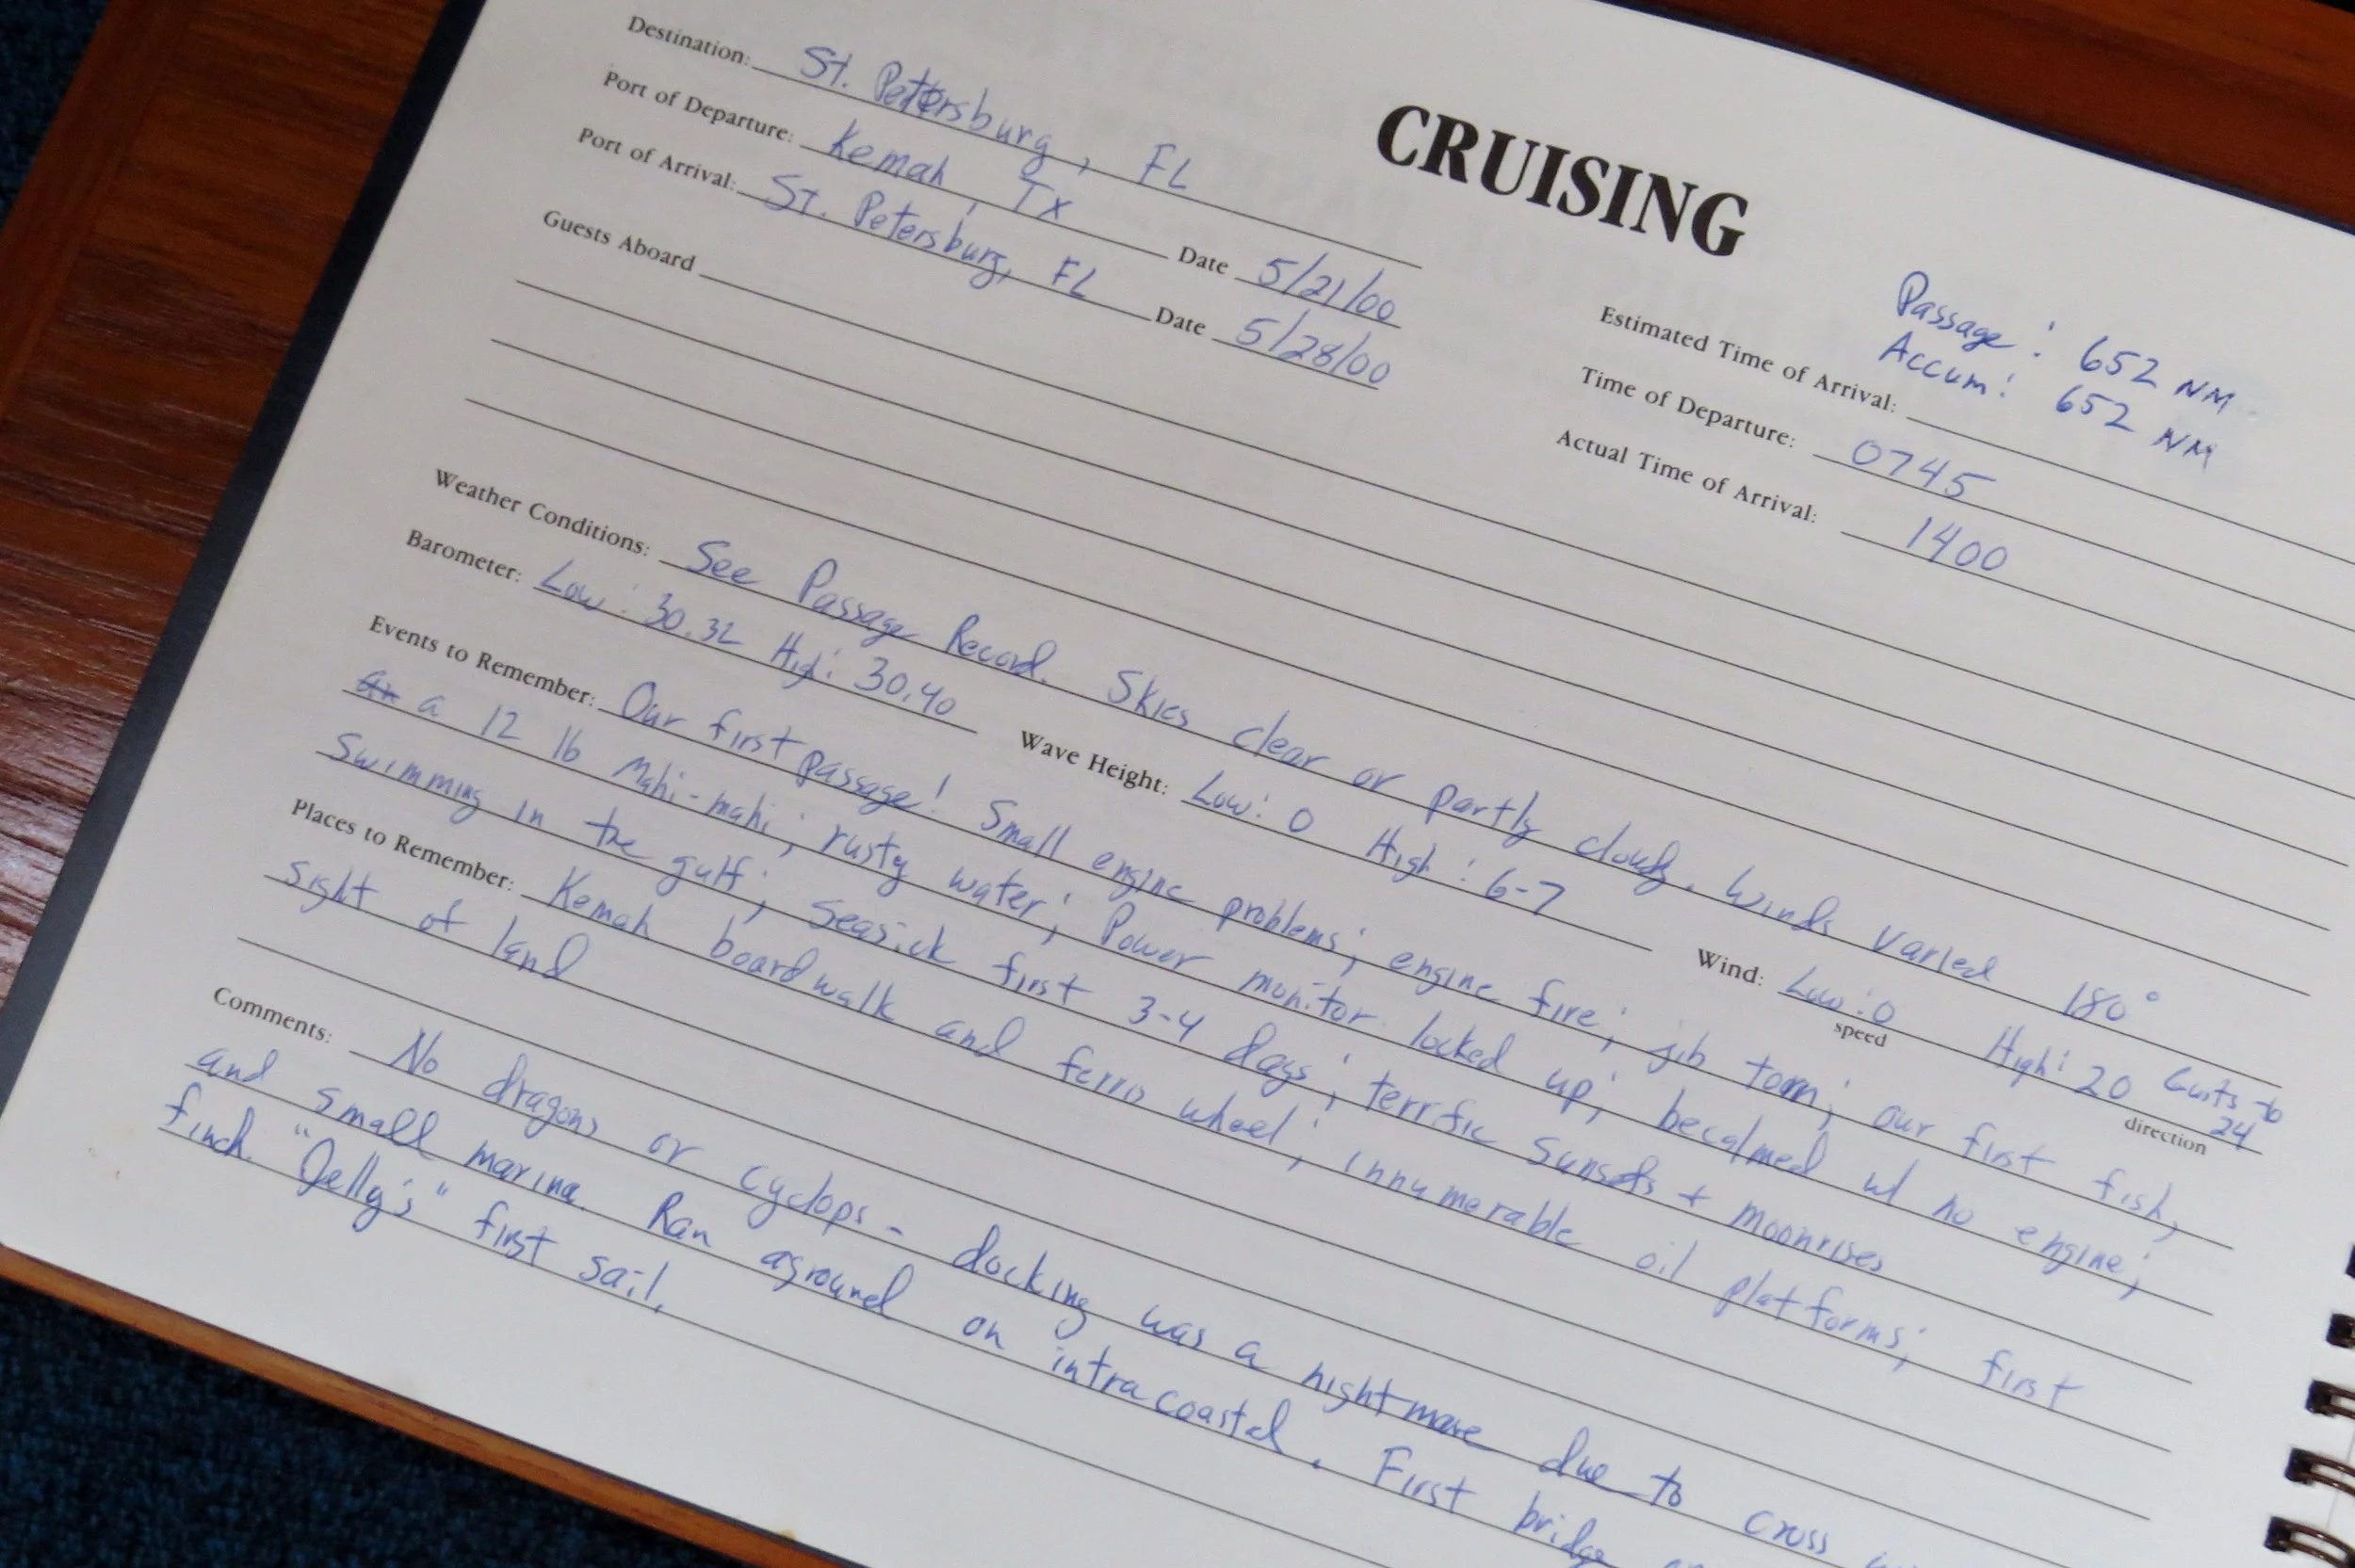 CRUISING
Destination: St. Petersburg, FL
Port of Departure: Kemah, Tx Date 5/21/00
Port of Arrival: St. Petersburg, FL Date 5/28/00
Guests Aboard
Passage: 652 NM
Accum: 652 NM
Estimated Time of Arrival:
Time of Departure: 0745
Actual Time of Arrival: 1400
Weather Conditions: See Passage Record. Skies clear or partly cloudy. Winds varied 180°
Barometer: Low: 30.32 High: 30.40 Wave Height: Low: 0 High: 6-7 Wind: Low: 0 High: 20 Gusts to 24
speed direction
Events to Remember: Our first passage! Small engine problems; engine fire; jib torn; our first fish,
an a 12 lb Mahi-mahi; rusty water; Power monitor locked up; becalmed w/ no engine;
Swimming in the gulf; seasick first 3-4 days; terrific sunsets + moonrises
Places to Remember: Kemah boardwalk and ferris wheel; innumerable oil platforms; first
sight of land
Comments: No dragons or cyclops - docking was a nightmare due to cross
and small marina. Ran aground on intracoastal. First bridge
finch. "Jelly's" first sail.